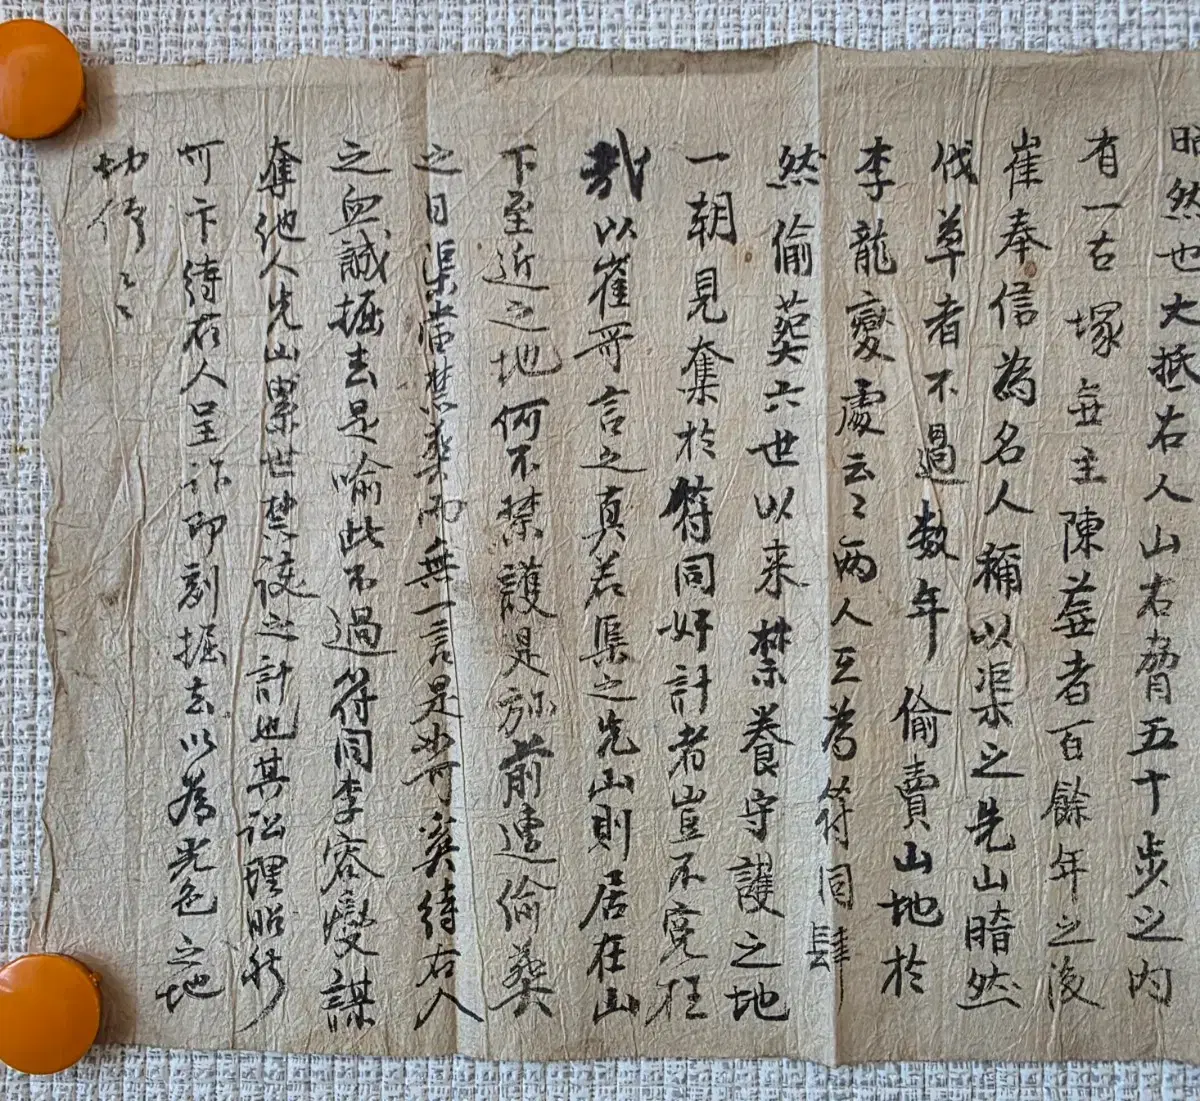 昭然也大抵右人山右脅五十步之内
有一古塚無主陳蕪者百餘年之後
崔奉信為名人稱以渠之先山暗然
伐草者不過数年偷賣山地於
李龍變處云〻兩人互為符同肆
然偷葬六世以来禁養守護之地
一朝見奪於符同奸計者豈不寃枉
哉以崔哥言之真若渠之先山則居在山
下至近之地何不禁護是旀前遭偷葬
之日渠當禁葬而無一言是如可奚待右人
之血誠掘去是喻此不過符同李容變謀
奪他人先山累世禁護之計也其訟理昭然
可卞待右人呈訴即刻掘去以為光色之地